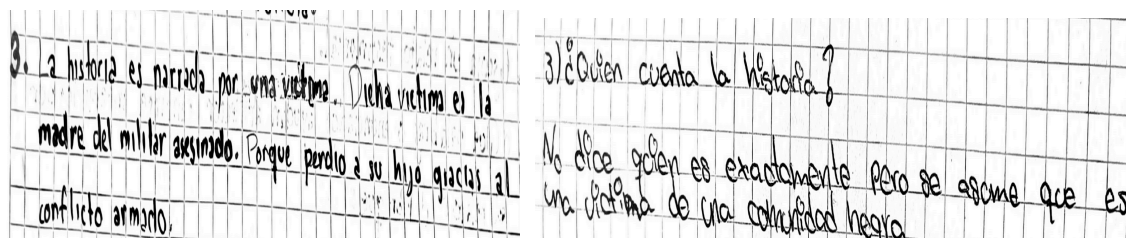 3. La historia es narrada por una victima. Dicha victima es la
madre del militar asesinado. Porque perdio a su hijo gracias al
conflicto armado.
3) ¿Quien cuenta la historia?
No dice quien es exactamente pero se asume que es
una victima de una comunidad negra